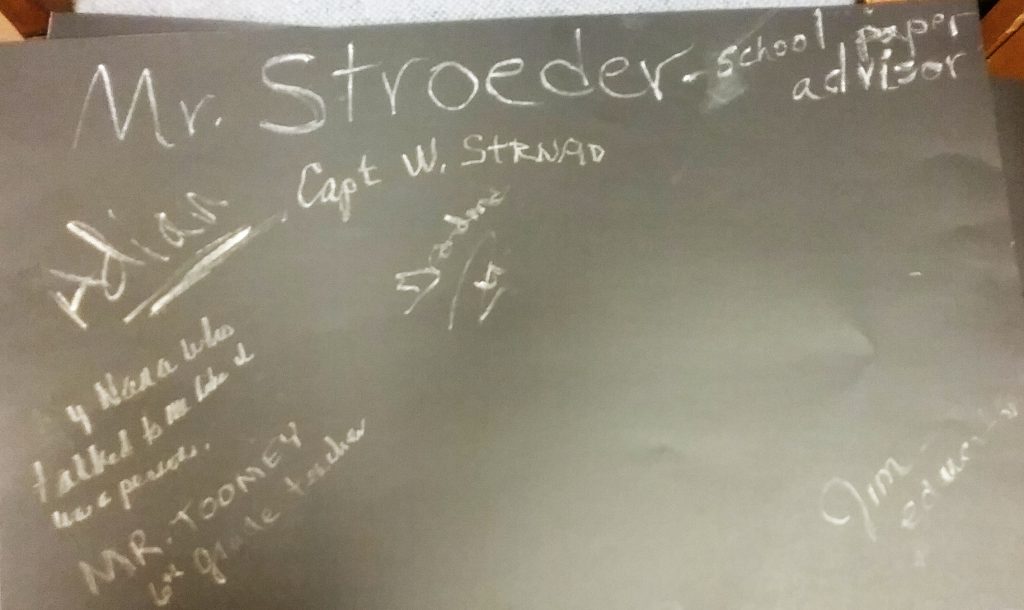 Mr. Stroeder - school paper
advisor
Capt W. STRNAD
Adian
y Nana who
talked to me like I
was a person.
MR. TOOMEY
6th grade teacher
Jim -